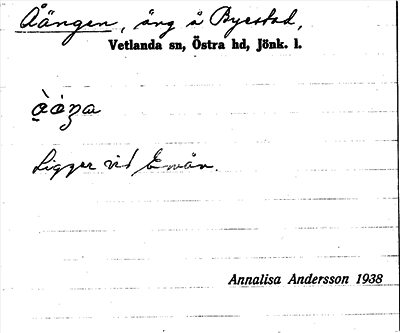 Åängen, äng å Byestad,
Vetlanda sn, Östra hd, Jönk. l.
Ligger vid Emån.
Annalisa Andersson 1938